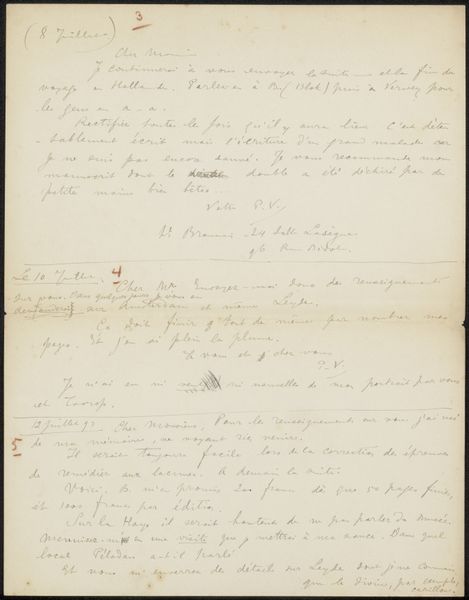 (8 Juillet) 3
Cher Monsieur
Je continuerai à vous envoyer la suite et la fin du
voyage en Hollande. Parlez en à B. (Blok) puis à Verwey pour
les gens en a-a.
Rectifiez toutes les fois qu'il y aura lieu C'est détes-
tablement écrit mais l'écriture d'un grand malade car
je ne suis pas encore sauvé. Je vous recommande mon
manuscrit dont le double a été déchiré par de
petites mains bien bêtes...
Votre P.V.
Hl Broussais 24 Salle Lasègue
96 Rue Didot.
Le 10 Juillet. 4 Cher Mr Envoyez-moi donc des renseignements
sur vous. Dans quelques jours je vous en
demanderai sur Amsterdam et même Leyde.
Ça doit finir tout de même par nombrer mes
pages. Et j'en ai plein la plume.
Je vous dis cher vous
P.-V.
Je n'ai eu ni ni nouvelles de mon portrait par vous
et Toorop.
12 juillet 93 Cher Monsieur, Pour les renseignements sur vous j'ai usé
5 de ma mémoire, ne voyant rien venir.
Il serait toujours facile lors de la correction des épreuves
de remédier aux lacunes. A demain la suite.
Voici. B. m'a promis 200 francs dès que 50 pages finies,
et 1000 francs par édition.
Sur la Haye il serait honteux de ne pas parler du Musée.
une visite que je mettrai à ma venance. Dans quel
local Péladan a-t-il parlé
Et vous m'enverrez des détails sur Leyde dont je ne connais
que le divin, par exemple,
carillon.